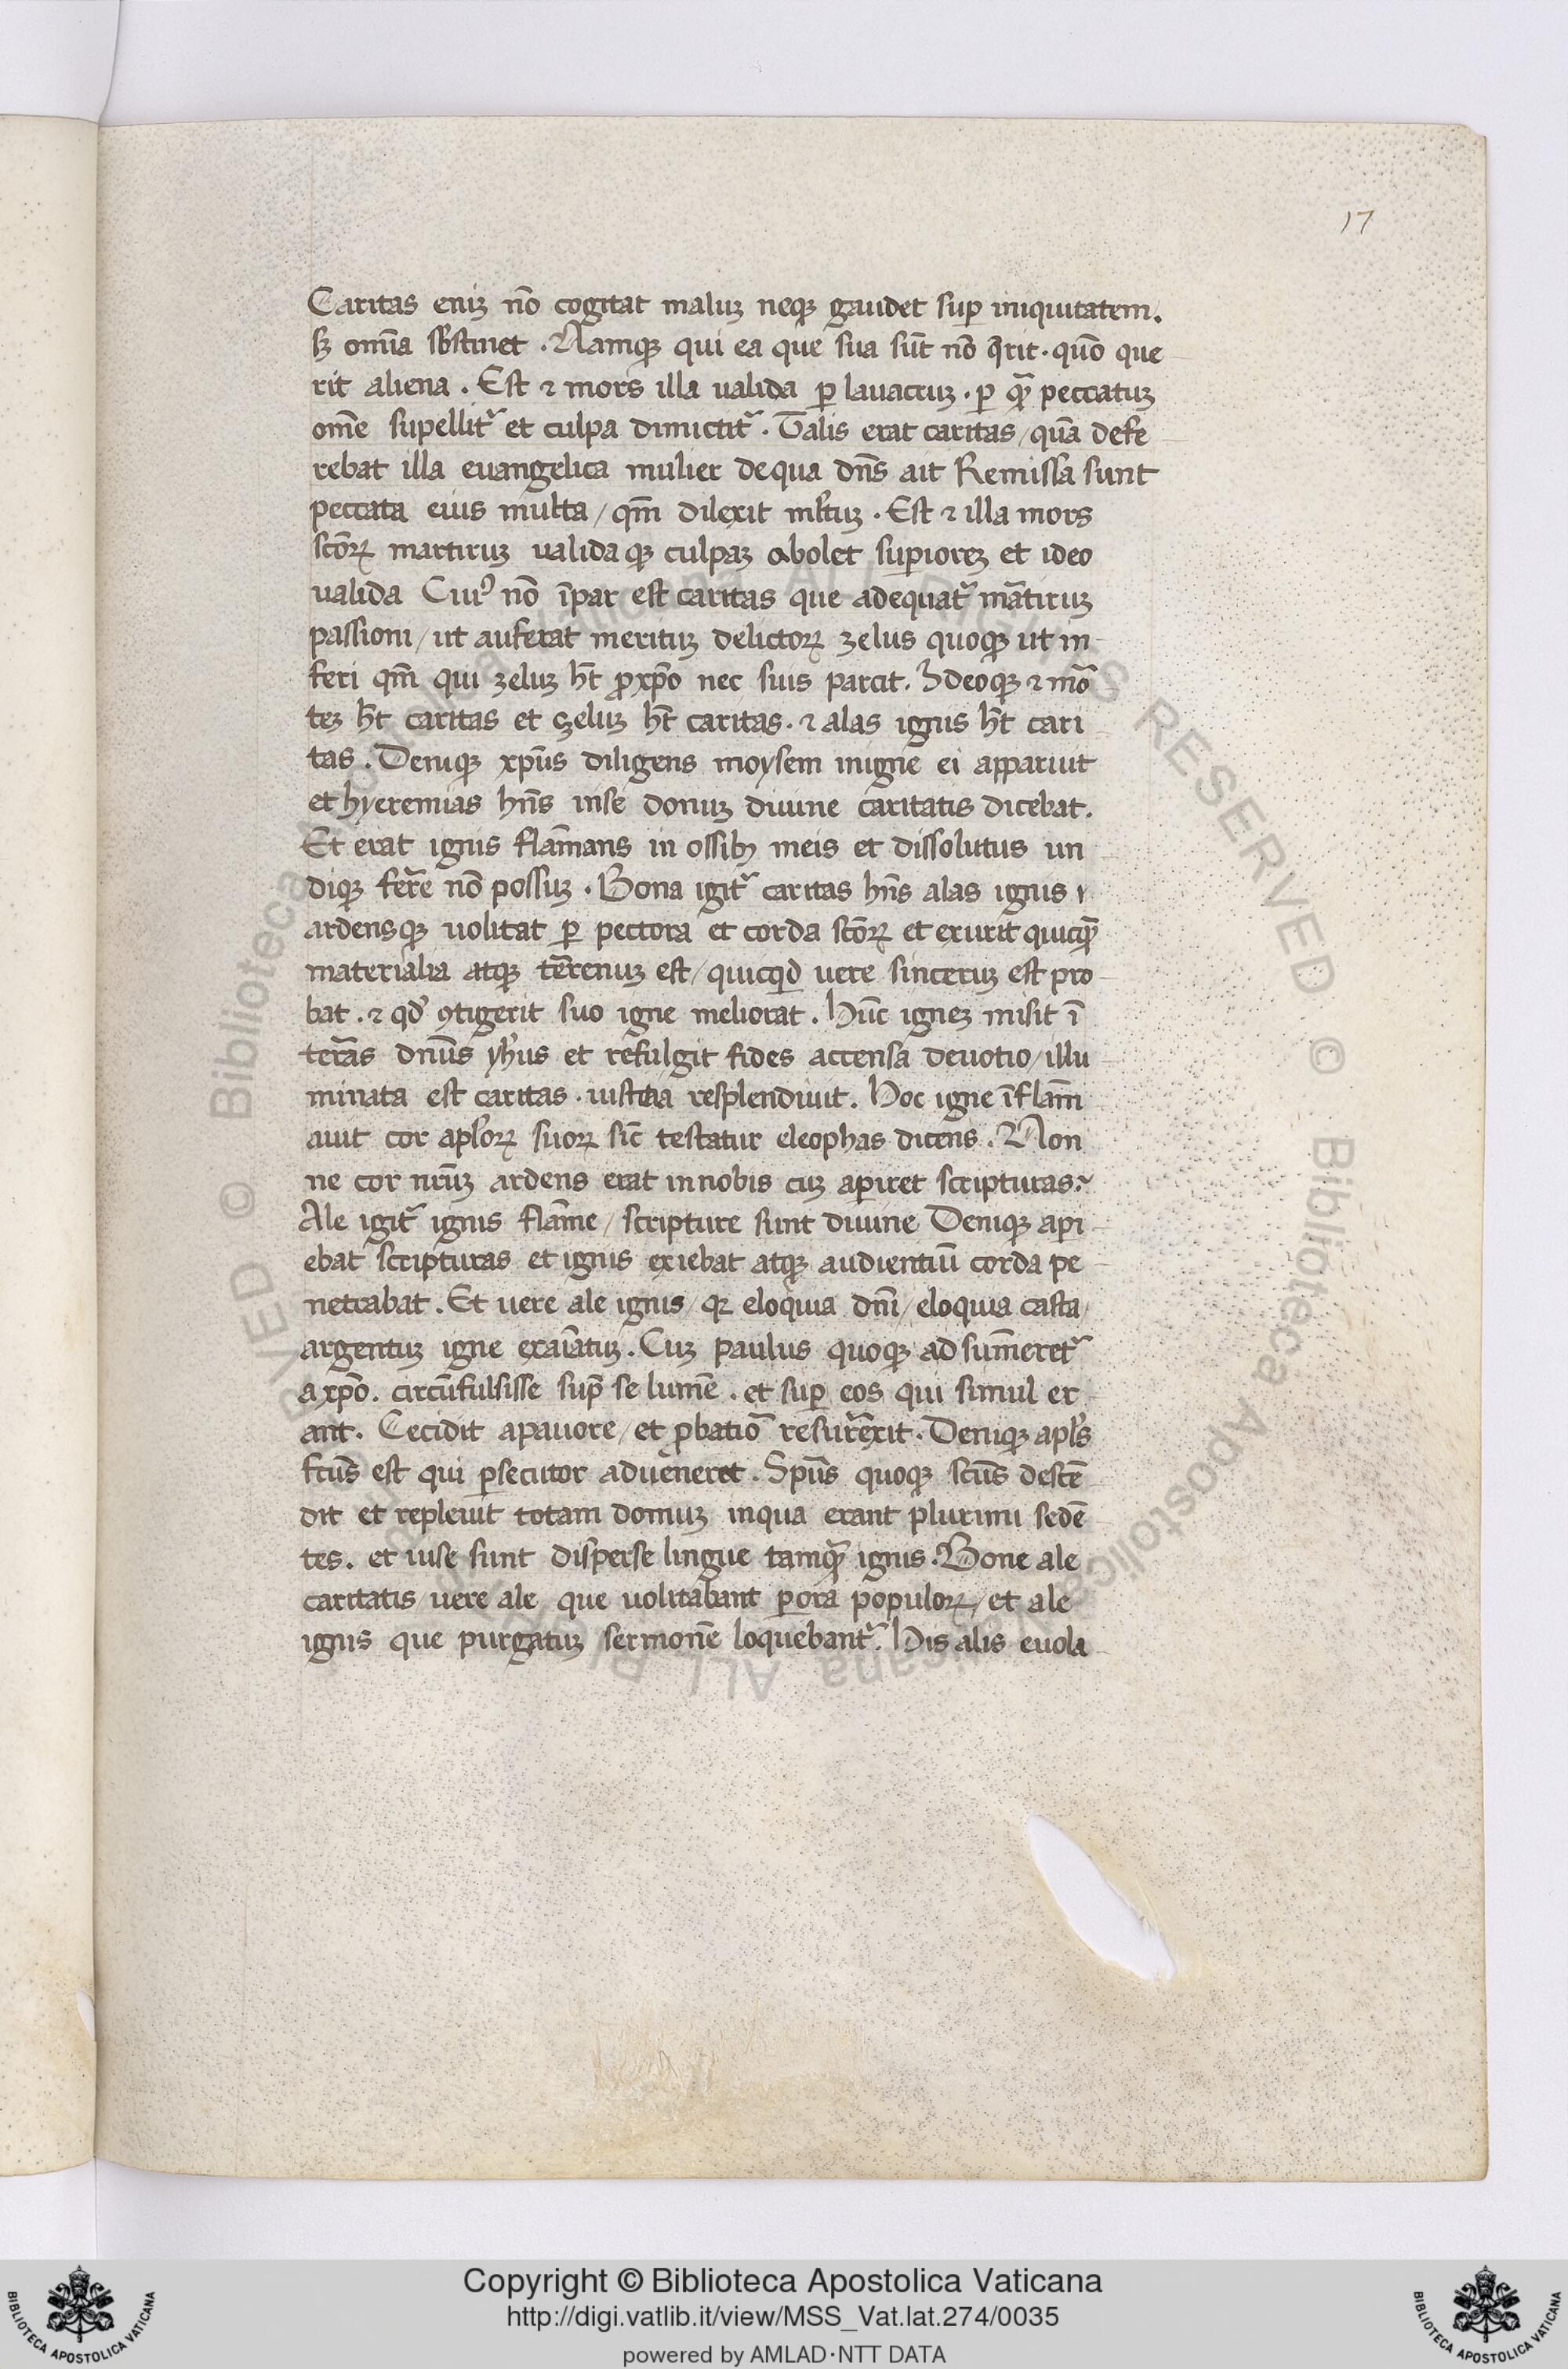 17
Caritas eniꝫ nō cogitat maluꝫ neqꝫ gaudet suꝑ iniquitatem.
sꝫ omīa sbstinet . Namqꝫ qui ea que sua sūt nō q̄rit . quō que
rit aliena . Est ⁊ mors illa ualida ꝑ lauacruꝫ . ꝑ qᷓ peccatuꝫ
omē supellit᷑ et culpa dimictit᷑ . Talis erat caritas / quā defe
rebat illa euangelica mulier dequa dn̄s ait Remissa sunt
peccata eius multa / qm̄ dilexit mltuꝫ . Est ⁊ illa mors
scōꝝ martiruꝫ ualida qꝫ culpaꝫ abolet suꝑioreꝫ et ideo
ualida Cuiꝰ nō īpar est caritas que adequat᷑ mᷓtiruꝫ
passioni / ut auferat merituꝫ delictoꝝ zelus quoqꝫ ut in
feri qm̄ qui zeluꝫ ht̄ ꝓxp̄o nec suis parcit . Ideoqꝫ ⁊ mō
teꝫ ht̄ caritas et zeluꝫ ht̄ caritas . ⁊ alas ignis ht̄ cari
tas . Deniqꝫ xp̄us diligens moysem inigne ei apparuit
et hyeremias hn̄s inse donuꝫ diuine caritatis dicebat .
Et erat ignis flām̄ans in ossibꝫ meis et dissolutus un
diqꝫ ferre nō possuꝫ . Bona igit᷑ caritas hn̄s alas ignis
ardensqꝫ uolitat ꝑ pectora et corda scōꝝ et exurit quicqᷓ
materialia atqꝫ terrenuꝫ est / quicqd uere sinceruꝫ est pro
bat . ⁊ qd ꝯtigerit suo igne meliorat . Hūc igneꝫ misit ī
terras dnūs yhus et refulgit fides accensa deuotio / illu
minata est caritas . iustitia resplenduit . Hoc igne īflam̄
auit cor apl̄oꝝ suoꝝ sic̄ testatur cleophas dicens . Non
ne cor nr̄uꝫ ardens erat innobis cuꝫ aꝑiret scripturas?
Ale igit᷑ ignis flam̄e / scripture sunt diuine Deniqꝫ aꝑi
ebat scripturas et ignis exiebat atqꝫ audientiū corda pe
netrabat . Et uere ale ignis / qꝛ eloquia dn̄i / eloquia casta /
argentuꝫ igne exaīatuꝫ . Cuꝫ paulus quoqꝫ ad sum̄eret᷑
axp̄o . circūfulsisse supᷓ se lumē . et suꝑ eos qui simul er
ant . Cecidit apauore / et ꝓbatiō resurrexit . Deniqꝫ apl̄s
fctūs est qui ꝑsecutor aduenerat . Spūs quoqꝫ sctūs descē
dit et repleuit totam domuꝫ inqua erant plurimi sedē
tes . et uise sunt disperse lingue tamqᷓ ignis . Bone ale
caritatis / uere ale que uolitabant ꝑora populoꝝ / et ale
ignis que purgatuꝫ sermonē loquebant᷑ . His alis euola
© Biblioteca Apostolica Vaticana ALL RIGHTS RESERVED © Biblioteca Apostolica Vaticana ALL RIGHTS RESERVED
Copyright © Biblioteca Apostolica Vaticana
http://digi.vatlib.it/view/MSS_Vat.lat.274/0035
powered by AMLAD·NTT DATA
BIBLIOTECA APOSTOLICA VATICANA
BIBLIOTECA APOSTOLICA VATICANA